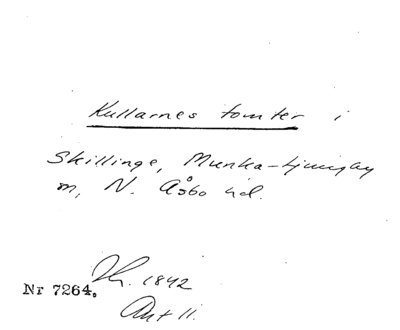 Kullarnes tomter i
Skillinge, Munka-Ljungby
m, N. Åsbo hd.
Nr 7264. 1842
Art 11.